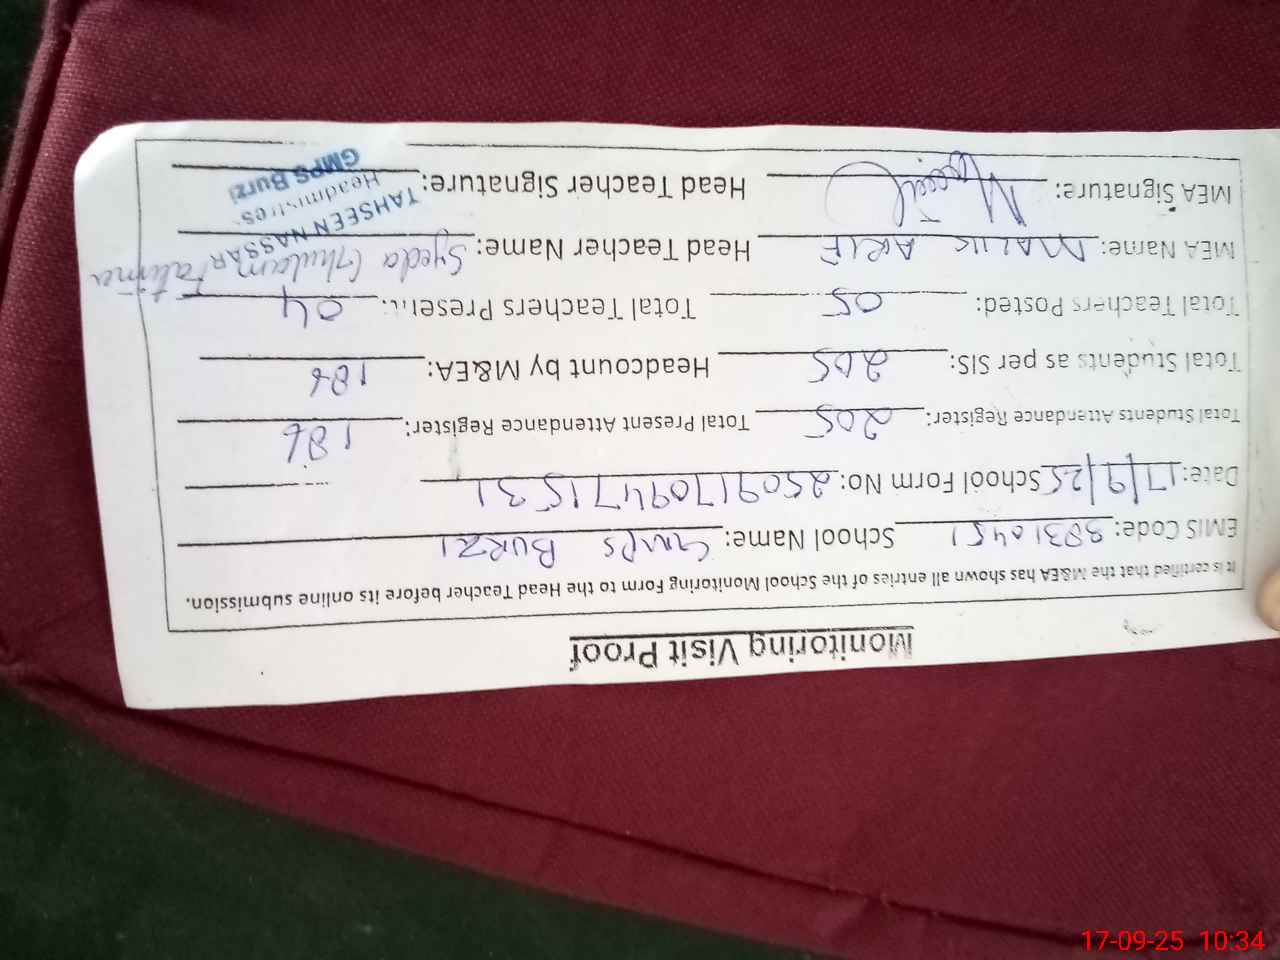 Monitoring Visit Proof
It is certified that the M&EA has shown all entries of the School Monitoring Form to the Head Teacher before its online submission.
EMIS Code: 38310451 School Name: GMPS BURZI
Date: 17/9/25 School Form No: 2509170947 1531
Total Students Attendance Register: 205 Total Present Attendance Register: 186
Total Students as per SIS: 205 Headcount by M&EA: 186
Total Teachers Posted: 05 Total Teachers Present: 04
MEA Name: MALIK ARIF Head Teacher Name: Syeda Ghulam Fatima
MEA Signature: Head Teacher Signature:
TAHSEEN NASSAR
Headmistres
GMPS Burzi
17-09-25 10:34